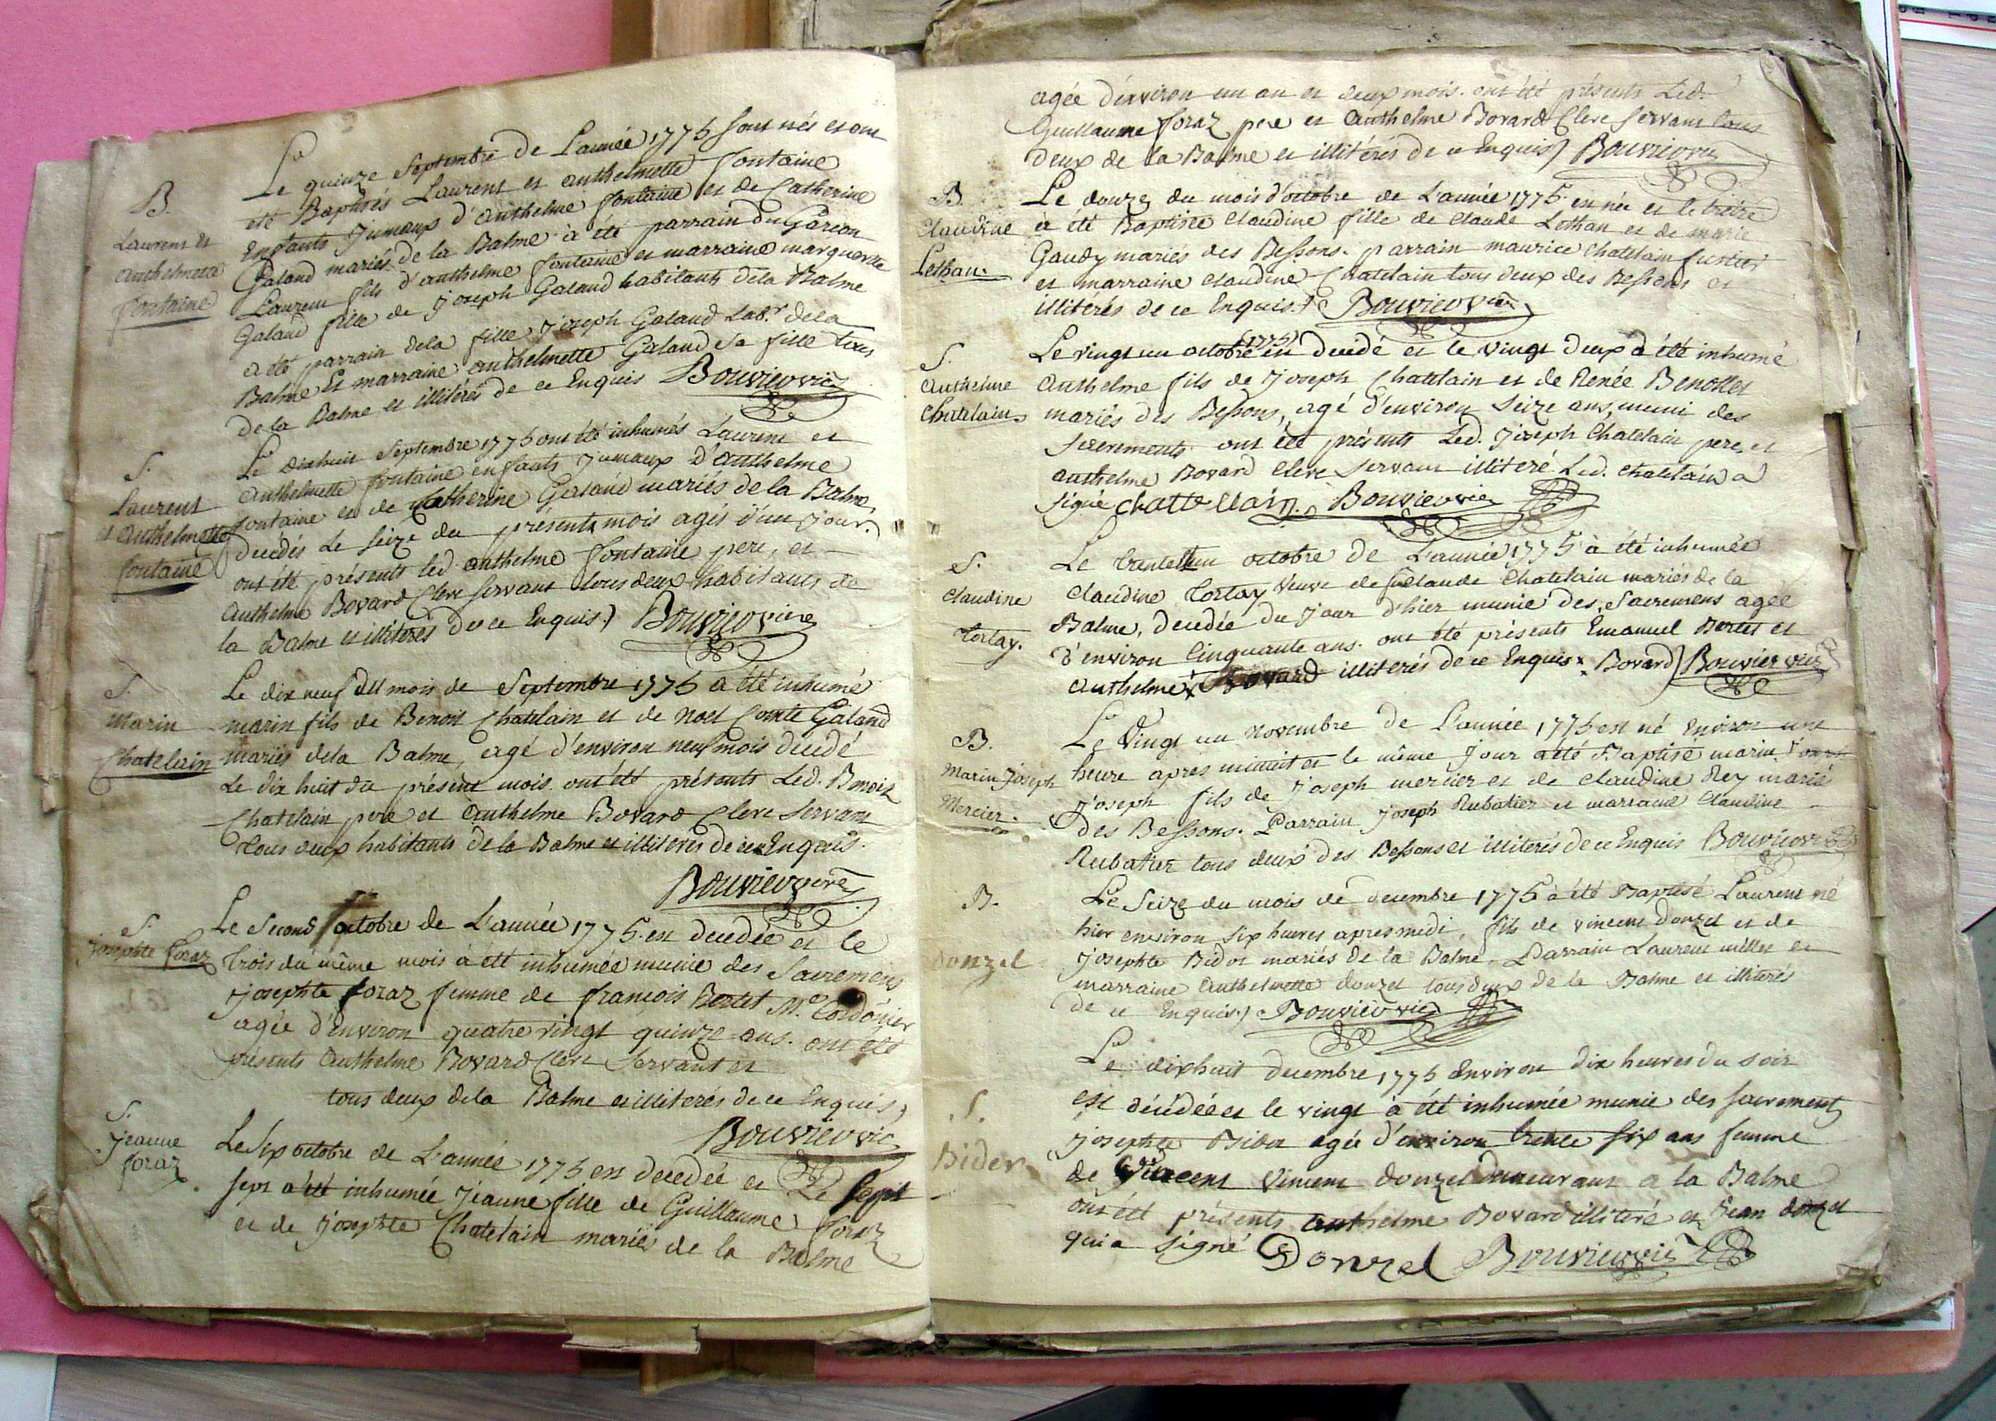 B.
Laurent et
Anthelmette
fontaine
Le quinze Septembre de L'année 1775 sont nés et ont
été Baptisés Laurent et anthelmette fontaine
Enfants Jumeaux d'Anthelme fontaine et de Catherine
Galand mariés de la Balme à été parrain du Garcon
Laurent fils d'anthelme fontaine et marraine marguerite
Galand fille de Joseph Galand habitants de la Balme
a été parrain de la fille Joseph Galand Lab.r de la
Balme Et marraine anthelmette Galand sa fille tous
de la Balme et illiterés de ce Enquis Bouvier vic
S.
Laurent
et Anthelmette
fontaine
Le dixhuit Septembre 1775 ont été inhumés Laurent et
anthelmette fontaine enfants Jumeaux d'anthelme
fontaine et de Catherine Galand mariés de la Balme,
decédés Le Seize du présent mois agés d'un jour.
ont été présents led. anthelme fontaine pere, et
anthelme Bovard Clerc servant tous deux habitants de
la Balme et illiterés de ce Enquis) Bouvier vicre
S.
Marin
Chatelain
Le dix neuf du mois de Septembre 1775 a été inhumé
marin fils de Benoit Chatelain et de Noel Comte Galand
mariés de la Balme, agé d'environ neuf mois decédé
Le dix huit du présent mois. ont été présents Led. Benoit
Chatelain pere et anthelme Bovard Clerc servant
tous deux habitants de la Balme et illiterés de ce Enquis.
Bouvier vicre
S.
Josephte foraz
Le Second octobre de L'année 1775. est decedée et le
trois du même mois à été inhumée munie des Sacremens
Josephte foraz femme de françois Bertet M.e Cordonier
agée d'environ quatre vingt quinze ans. ont été
présents Anthelme Bovard Clerc Servant et
tous deux de la Balme et illiterés de ce Enquis)
Bouvier vic
S.
Jeanne
foraz
Le Six octobre de L'année 1775 est decedée et Le Sept
sept a été inhumée Jeanne fille de Guillaume foraz
et de Josephte Chatelain mariés de la Balme
agée d'environ un an et deux mois. ont été présents Led.
Guillaume foraz pere et anthelme Bovard Clerc servant tous
deux de la Balme et illiterés de ce Enquis) Bouvier vic
B.
Claudine
Lethan.
Le douze du mois d'octobre de L'année 1775 est née et le treize
à été Baptisée Claudine fille de Claude Lethan et de marie
Gaudy mariés des Bessons. parrain maurice Chatelain
et marraine Claudine Chatelain tous deux des Bessons et
illiterés de ce Enquis.) Bouvier vic
S.
Anthelme
Chatelain
(1775)
Le vingt un octobre est decedé et le vingt deux a été inhumé
Anthelme fils de Joseph Chatelain et de Renée Benottet
mariés des Bessons, agé d'environ Seize ans, muni des
Sacrements. ont été présents Led. Joseph Chatelain pere, et
anthelme Bovard Clerc Servant illiteré Led. Chatelain a
signé Chattellain. Bouvier vic
S.
Claudine
Tortay.
Le trente un octobre de L'année 1775 à été inhumée
Claudine Tortay Veuve de Claude Chatelain mariés de la
Balme, decedée du Jour d'hier munie des Sacremens agée
d'environ Cinquante ans. ont été présents Emanuel Bertet et
Anthelme Bovard illiterés de ce Enquis Bovard) Bouvier vic
B.
Marin Joseph
Mercier.
Le Vingt un novembre de L'année 1775 est né Environ une
heure apres minuit et le même Jour a été Baptisé marin
Joseph fils de Joseph mercier et de Claudine Rey mariés
des Bessons. Parrain Joseph Rubatier et marraine Claudine
Rubatier tous deux des Bessons et illiterés de ce Enquis Bouvier vic
B.
Donzel
Le Seize du mois de decembre 1775 à été Baptisé Laurent né
hier environ Six heures apres midi, fils de vincent donzel et de
Josephte Bidor mariés de la Balme. Parrain Laurent millet et
marraine Anthelmette donzel tous deux de la Balme et illiterés
de ce Enquis) Bouvier vic
S.
Bider
Le dixhuit decembre 1775 Environ dix heures du soir
est décédée et le vingt à été inhumée munie des sacrements
Josephte Bidor agée d'environ trente six ans femme
de Vincent Vincent donzel demeurant a la Balme
ont été présents anthelme Bovard illiteré et Jean donzel
qui a signé Donzel Bouvier vic